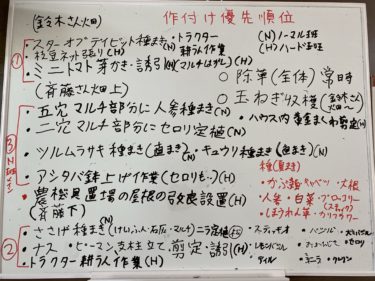 (鈴木さん畑)
作付け優先順位
(N)ノーマル班
(H)ハード班
① ・スターオブデイビット種まき(N) ・トラクター耕うん作業(H)
・枝豆ネット張り(H)
・ミニトマト芽かき・誘引(H)(マルチはずし)(H)
○ 除草(全体)常時
○ 玉ねぎ収穫(鈴木さん畑〜)
(斉藤さん畑 上)
・ハウス内黄金まくわ剪定(H)
③ ・五穴マルチ部分に人参種まき(N)
・二穴マルチ部分にセロリ定植(N)
・ツルムラサキ種まき(直まき)(N) ・キュウリ種まき(直まき)(N)
・アシタバ鉢上げ作業(セロリも..)(H)
・農機具置場の屋根の改良設置(H)
種(夏まき)
・かぶ ・キャベツ ・大根
・人参 ・白菜 ・ブロッコリー
(スティック)
・ほうれん草 ・カリフラワー
(斉藤下)
② ・ささげ種まき(N)
・ナス ・ピーマン支柱立て、剪定・誘引(H)
・トラクター耕うん作業(H)
・レモンバジル
・ディル
・バジル
・セロリ